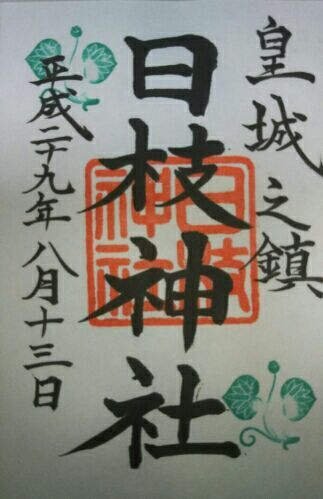 皇城之鎮
日枝神社
平成二十九年八月十三日
日枝
神社